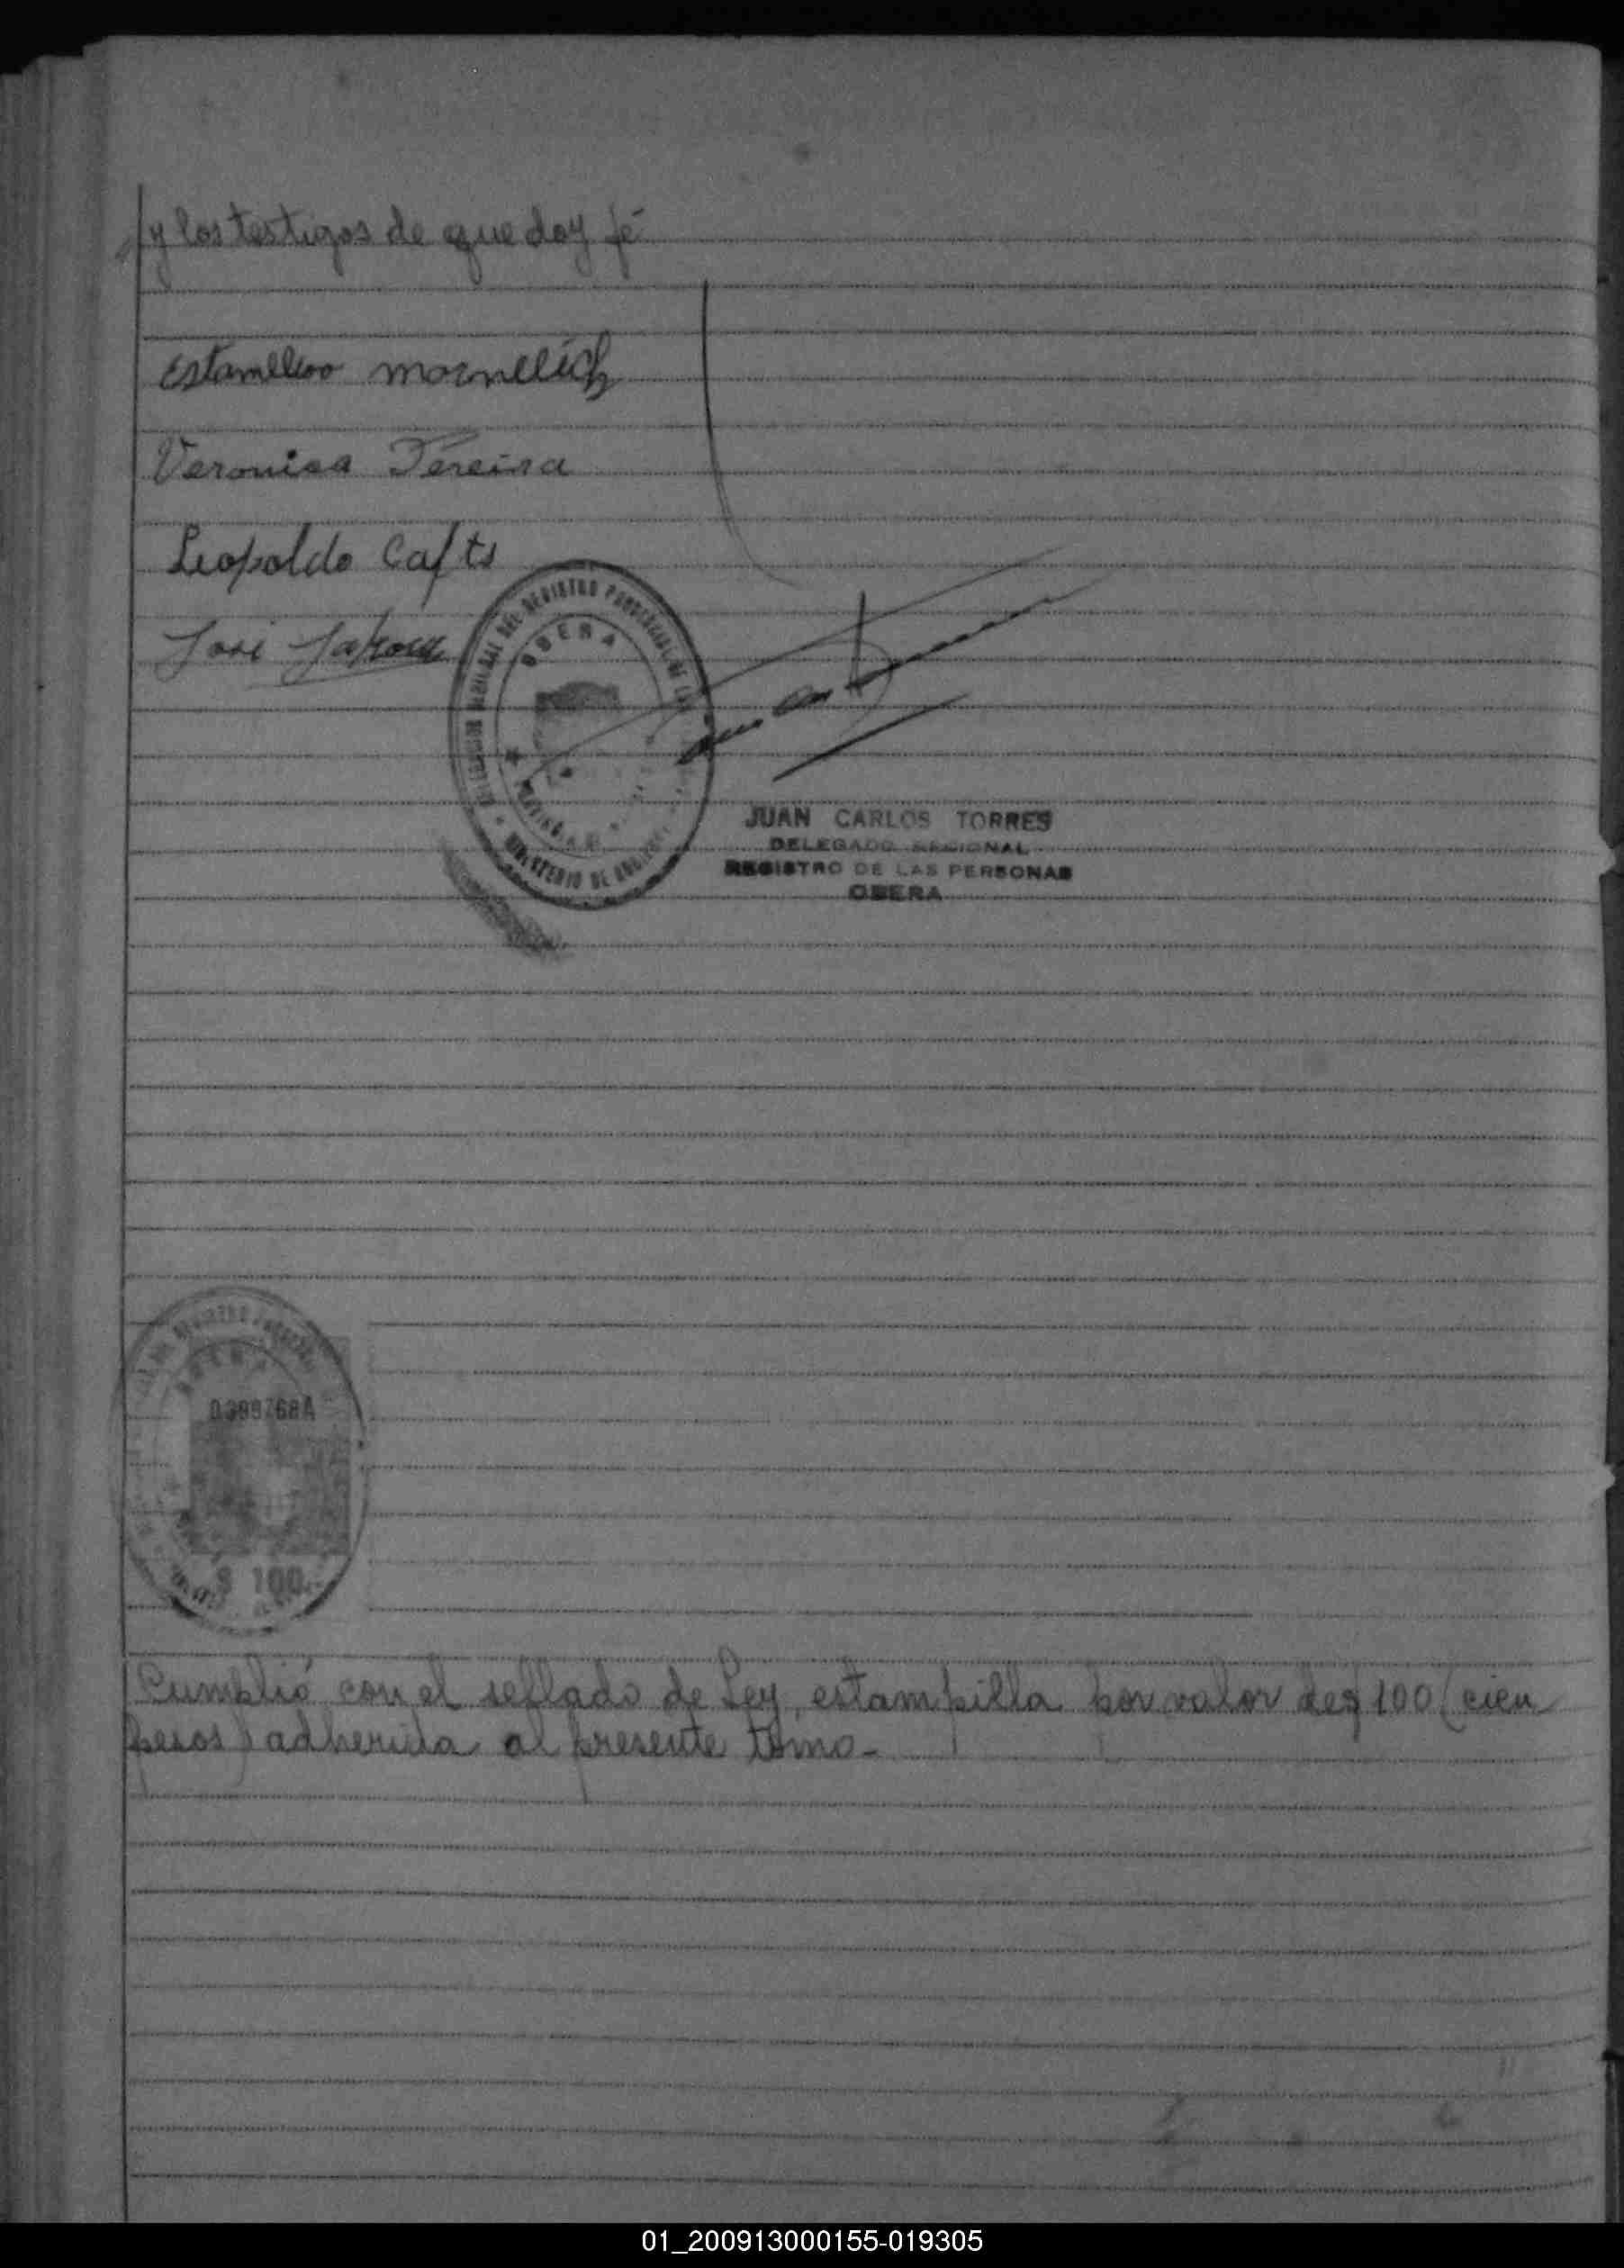 y los testigos de que doy fé
Veronica Pereira
Leopoldo Cafts
José
OBERA
JUAN CARLOS TORRES
DELEGADO REGIONAL
REGISTRO DE LAS PERSONAS
OBERA
$ 100.-
Cumplió con el sellado de Ley, estampilla por valor de $ 100 (cien
pesos) adherida al presente tomo-
01_200913000155-019305